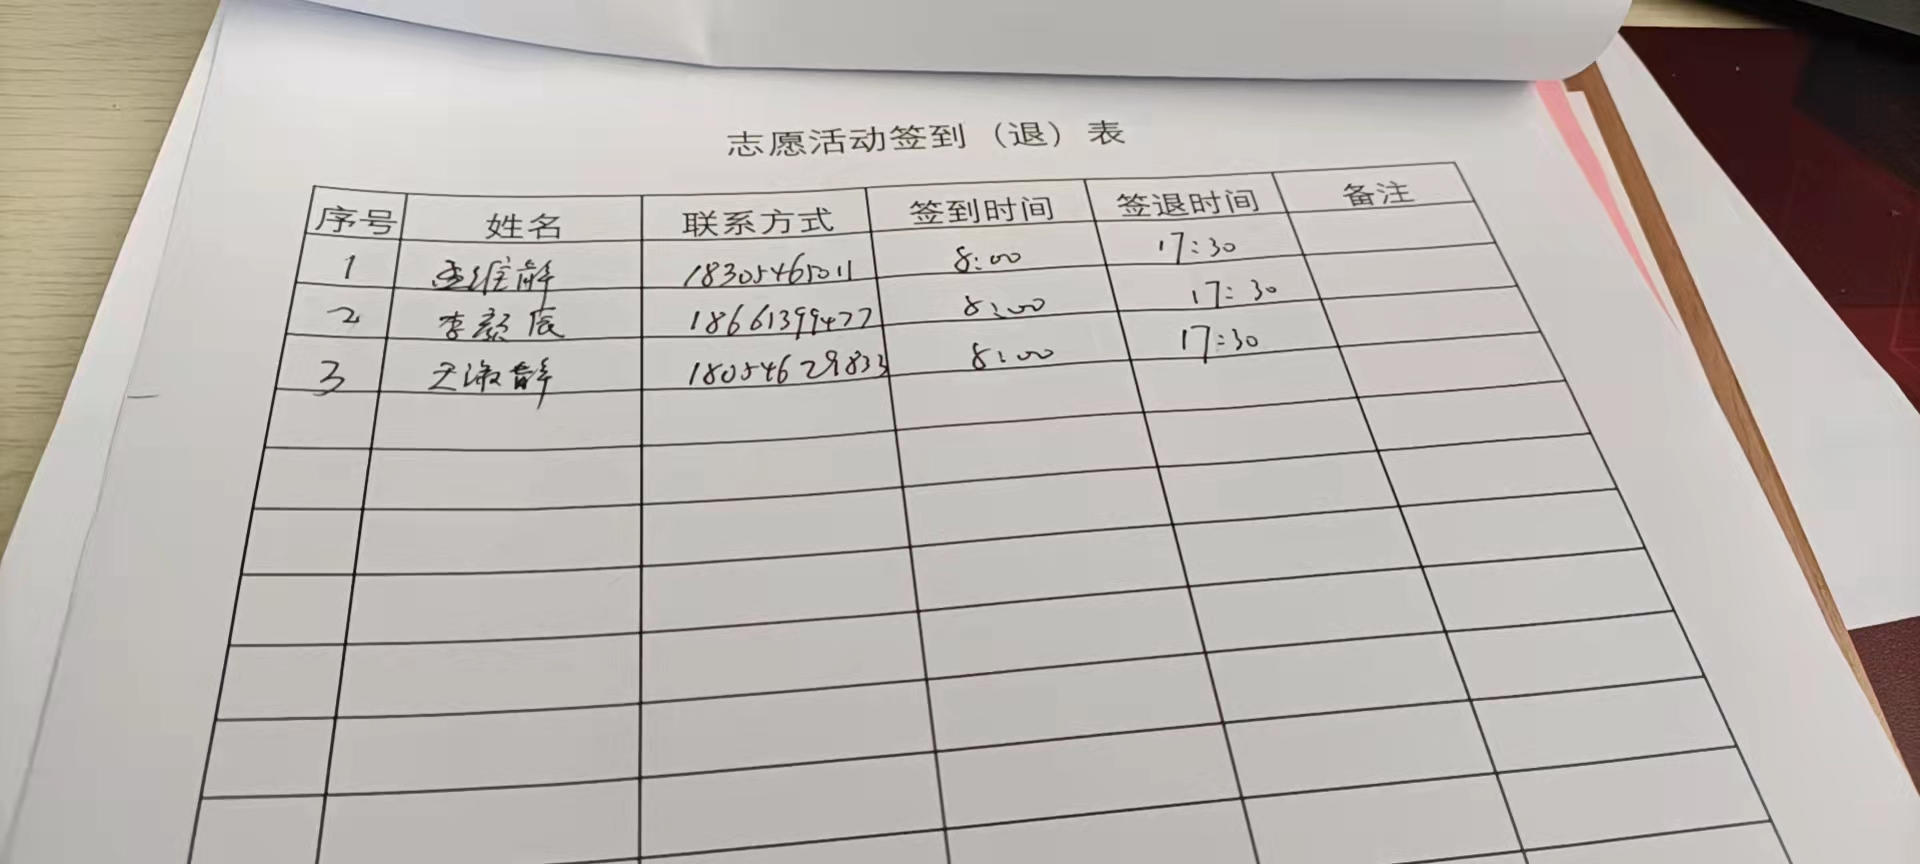 志愿活动签到（退）表
序号 姓名 联系方式 签到时间 签退时间 备注
1 18305465011 8:00 17:30
2 李颜辰 18661399477 8:00 17:30
3 18054629833 8:00 17:30